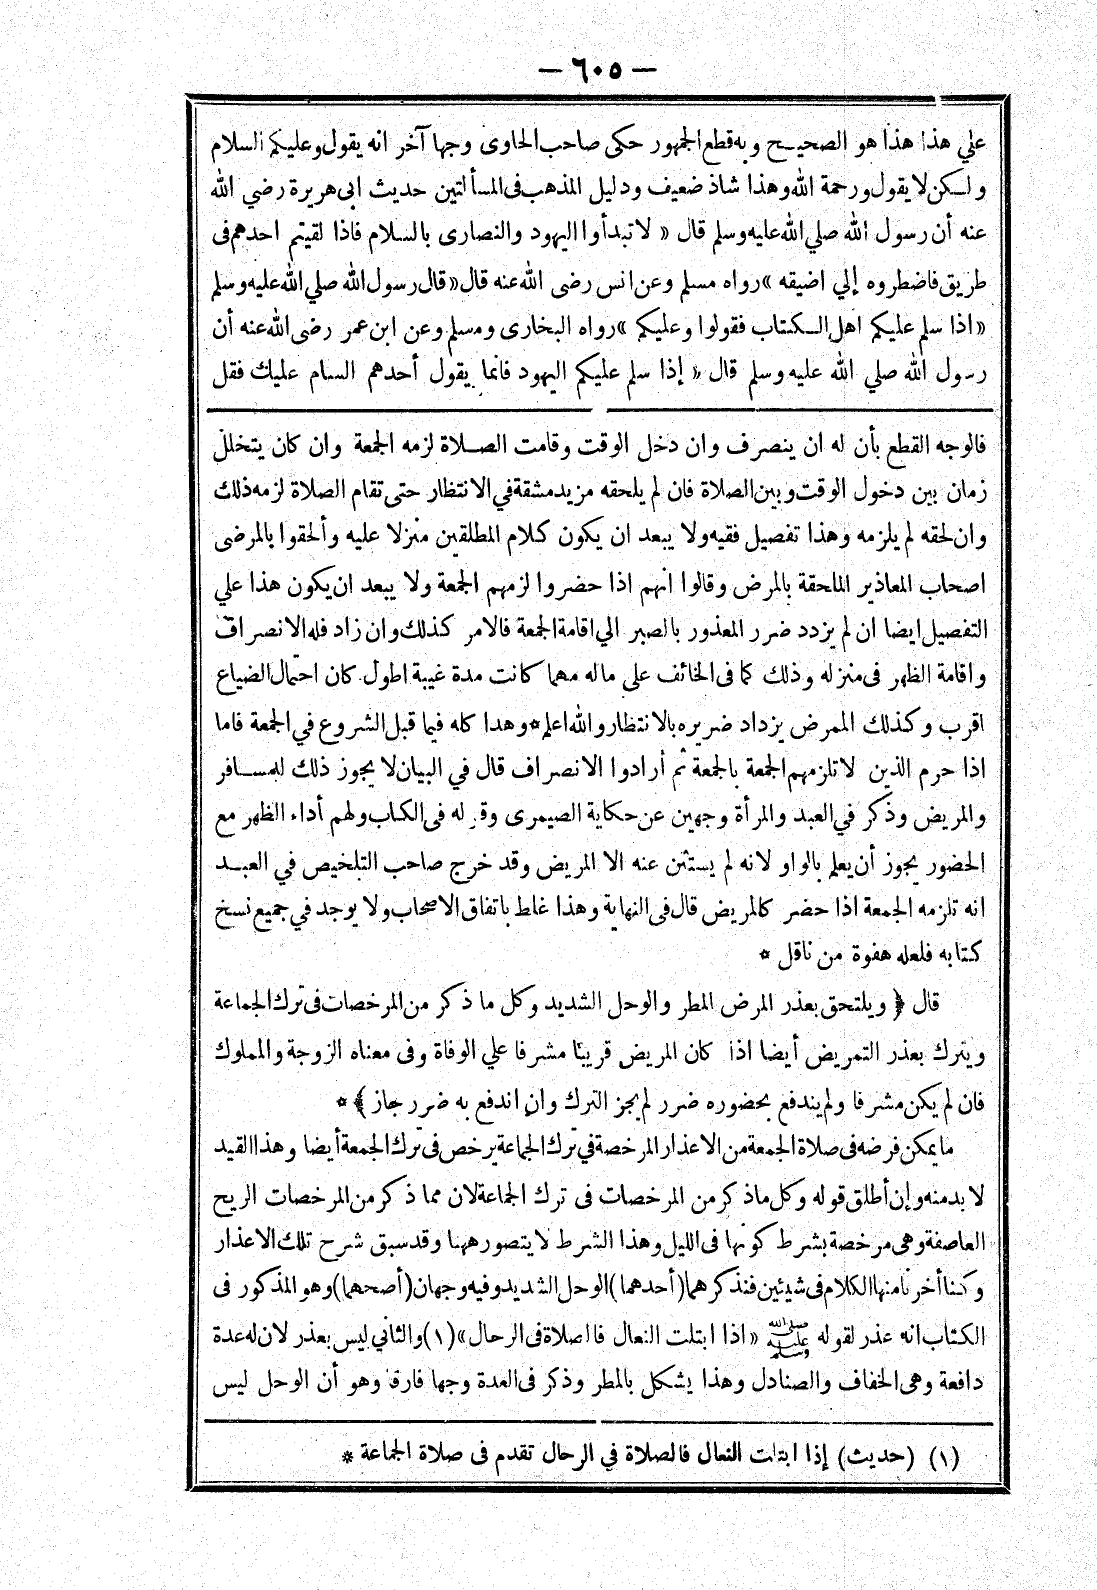 — ٦٠٥ —
علي هذا هذا هو الصحيح وبه قطع الجمهور حكى صاحب الحاوى وجها آخر انه يقول وعليكم السلام
ولكن لا يقول ورحمة الله وهذا شاذ ضعيف ودليل المذهب فى المسألتين حديث ابى هريرة رضي الله
عنه أن رسول الله صلي الله عليه وسلم قال « لا تبدأوا اليهود والنصارى بالسلام فاذا لقيتم احدهم فى
طريق فاضطروه إلي اضيقه » رواه مسلم وعن انس رضى الله عنه قال « قال رسول الله صلي الله عليه وسلم
« اذا سلم عليكم اهل الكتاب فقولوا وعليكم » رواه البخارى ومسلم وعن ابن عمر رضى الله عنه أن
رسول الله صلي الله عليه وسلم قال « إذا سلم عليكم اليهود فانما يقول أحدهم السام عليك فقل
فالوجه القطع بأن له ان ينصرف وان دخل الوقت وقامت الصلاة لزمه الجمعة وان كان يتخلل
زمان بين دخول الوقت وبين الصلاة فان لم يلحقه مزيد مشقة في الانتظار حتى تقام الصلاة لزمه ذلك
وان لحقه لم يلزمه وهذا تفصيل فقيه ولا يبعد ان يكون كلام المطلقين منزلا عليه وألحقوا بالمرضى
اصحاب المعاذير الملحقة بالمرض وقالوا انهم اذا حضروا لزمهم الجمعة ولا يبعد ان يكون هذا علي
التفصيل ايضا ان لم يزدد ضرر المعذور بالصبر الي اقامة الجمعة فالامر كذلك وان زاد فله الانصراف
واقامة الظهر فى منزله وذلك كما فى الخائف علي ماله مهما كانت مدة غيبة اطول كان احتمال الضياع
اقرب وكذلك الممرض يزداد ضريره بالانتظار والله اعلم * وهذا كله فيما قبل الشروع في الجمعة فاما
اذا حرم الذين لا تلزمهم الجمعة بالجمعة ثم أرادوا الانصراف قال في البيان لا يجوز ذلك للمسافر
والمريض وذكر في العبد والمرأة وجهين عن حكاية الصيمرى وقوله فى الكتاب ولهم أداء الظهر مع
الحضور يجوز أن يعلم بالواو لانه لم يستثن عنه الا المريض وقد خرج صاحب التلخيص في العبد
انه تلزمه الجمعة اذا حضر كالمريض قال فى النهاية وهذا غلط باتفاق الاصحاب ولا يوجد في جميع نسخ
كتابه فلعله هفوة من ناقل *
قال ﴿ ويلتحق بعذر المرض المطر والوحل الشديد وكل ما ذكر من المرخصات فى ترك الجماعة
ويترك بعذر التمريض أيضا اذا كان المريض قريبا مشرفا علي الوفاة وفى معناه الزوجة والمملوك
فان لم يكن مشرفا ولم يندفع بحضوره ضرر لم يجز الترك وان اندفع به ضرر جاز ﴾ *
ما يمكن فرضه فى صلاة الجمعة من الاعذار المرخصة في ترك الجماعة يرخص فى ترك الجمعة أيضا وهذا القيد
لا بد منه وإن أطلق قوله وكل ما ذكر من المرخصات فى ترك الجماعة لان مما ذكر من المرخصات الريح
العاصفة وهى مرخصة بشرط كونها فى الليل وهذا الشرط لا يتصور ههنا وقد سبق شرح تلك الاعذار
وكنا أخرنا منها الكلام فى شيئين فنذكرهما (أحدهما) الوحل الشديد وفيه وجهان (أصحهما) وهو المذكور فى
الكتاب انه عذر لقوله صلى الله عليه وسلم « اذا ابتلت النعال فالصلاة فى الرحال » (١) والثاني ليس بعذر لان له عدة
دافعة وهى الخفاف والصنادل وهذا يشكل بالمطر وذكر فى العدة وجها فارقا وهو أن الوحل ليس
(١) (حديث) إذا ابتلت النعال فالصلاة في الرحال تقدم فى صلاة الجماعة *